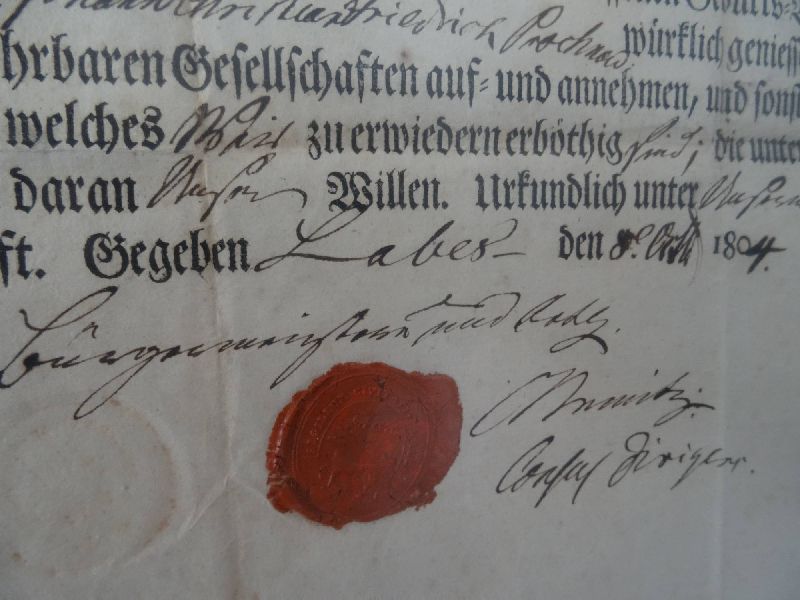 Johann Christian Friedrich Prochnow
würklich geniess
hrbaren Gesellschaften auf= und annehmen, und sonst
welches Wir zu erwiedern erböthig sind; die unter
daran Unser Willen. Urkundlich unter Unserm
ft. Gegeben Labes den 8. Octbr 1804.
Bürgermeistere und Rath.
Nemitz.
Consul Dirigens.